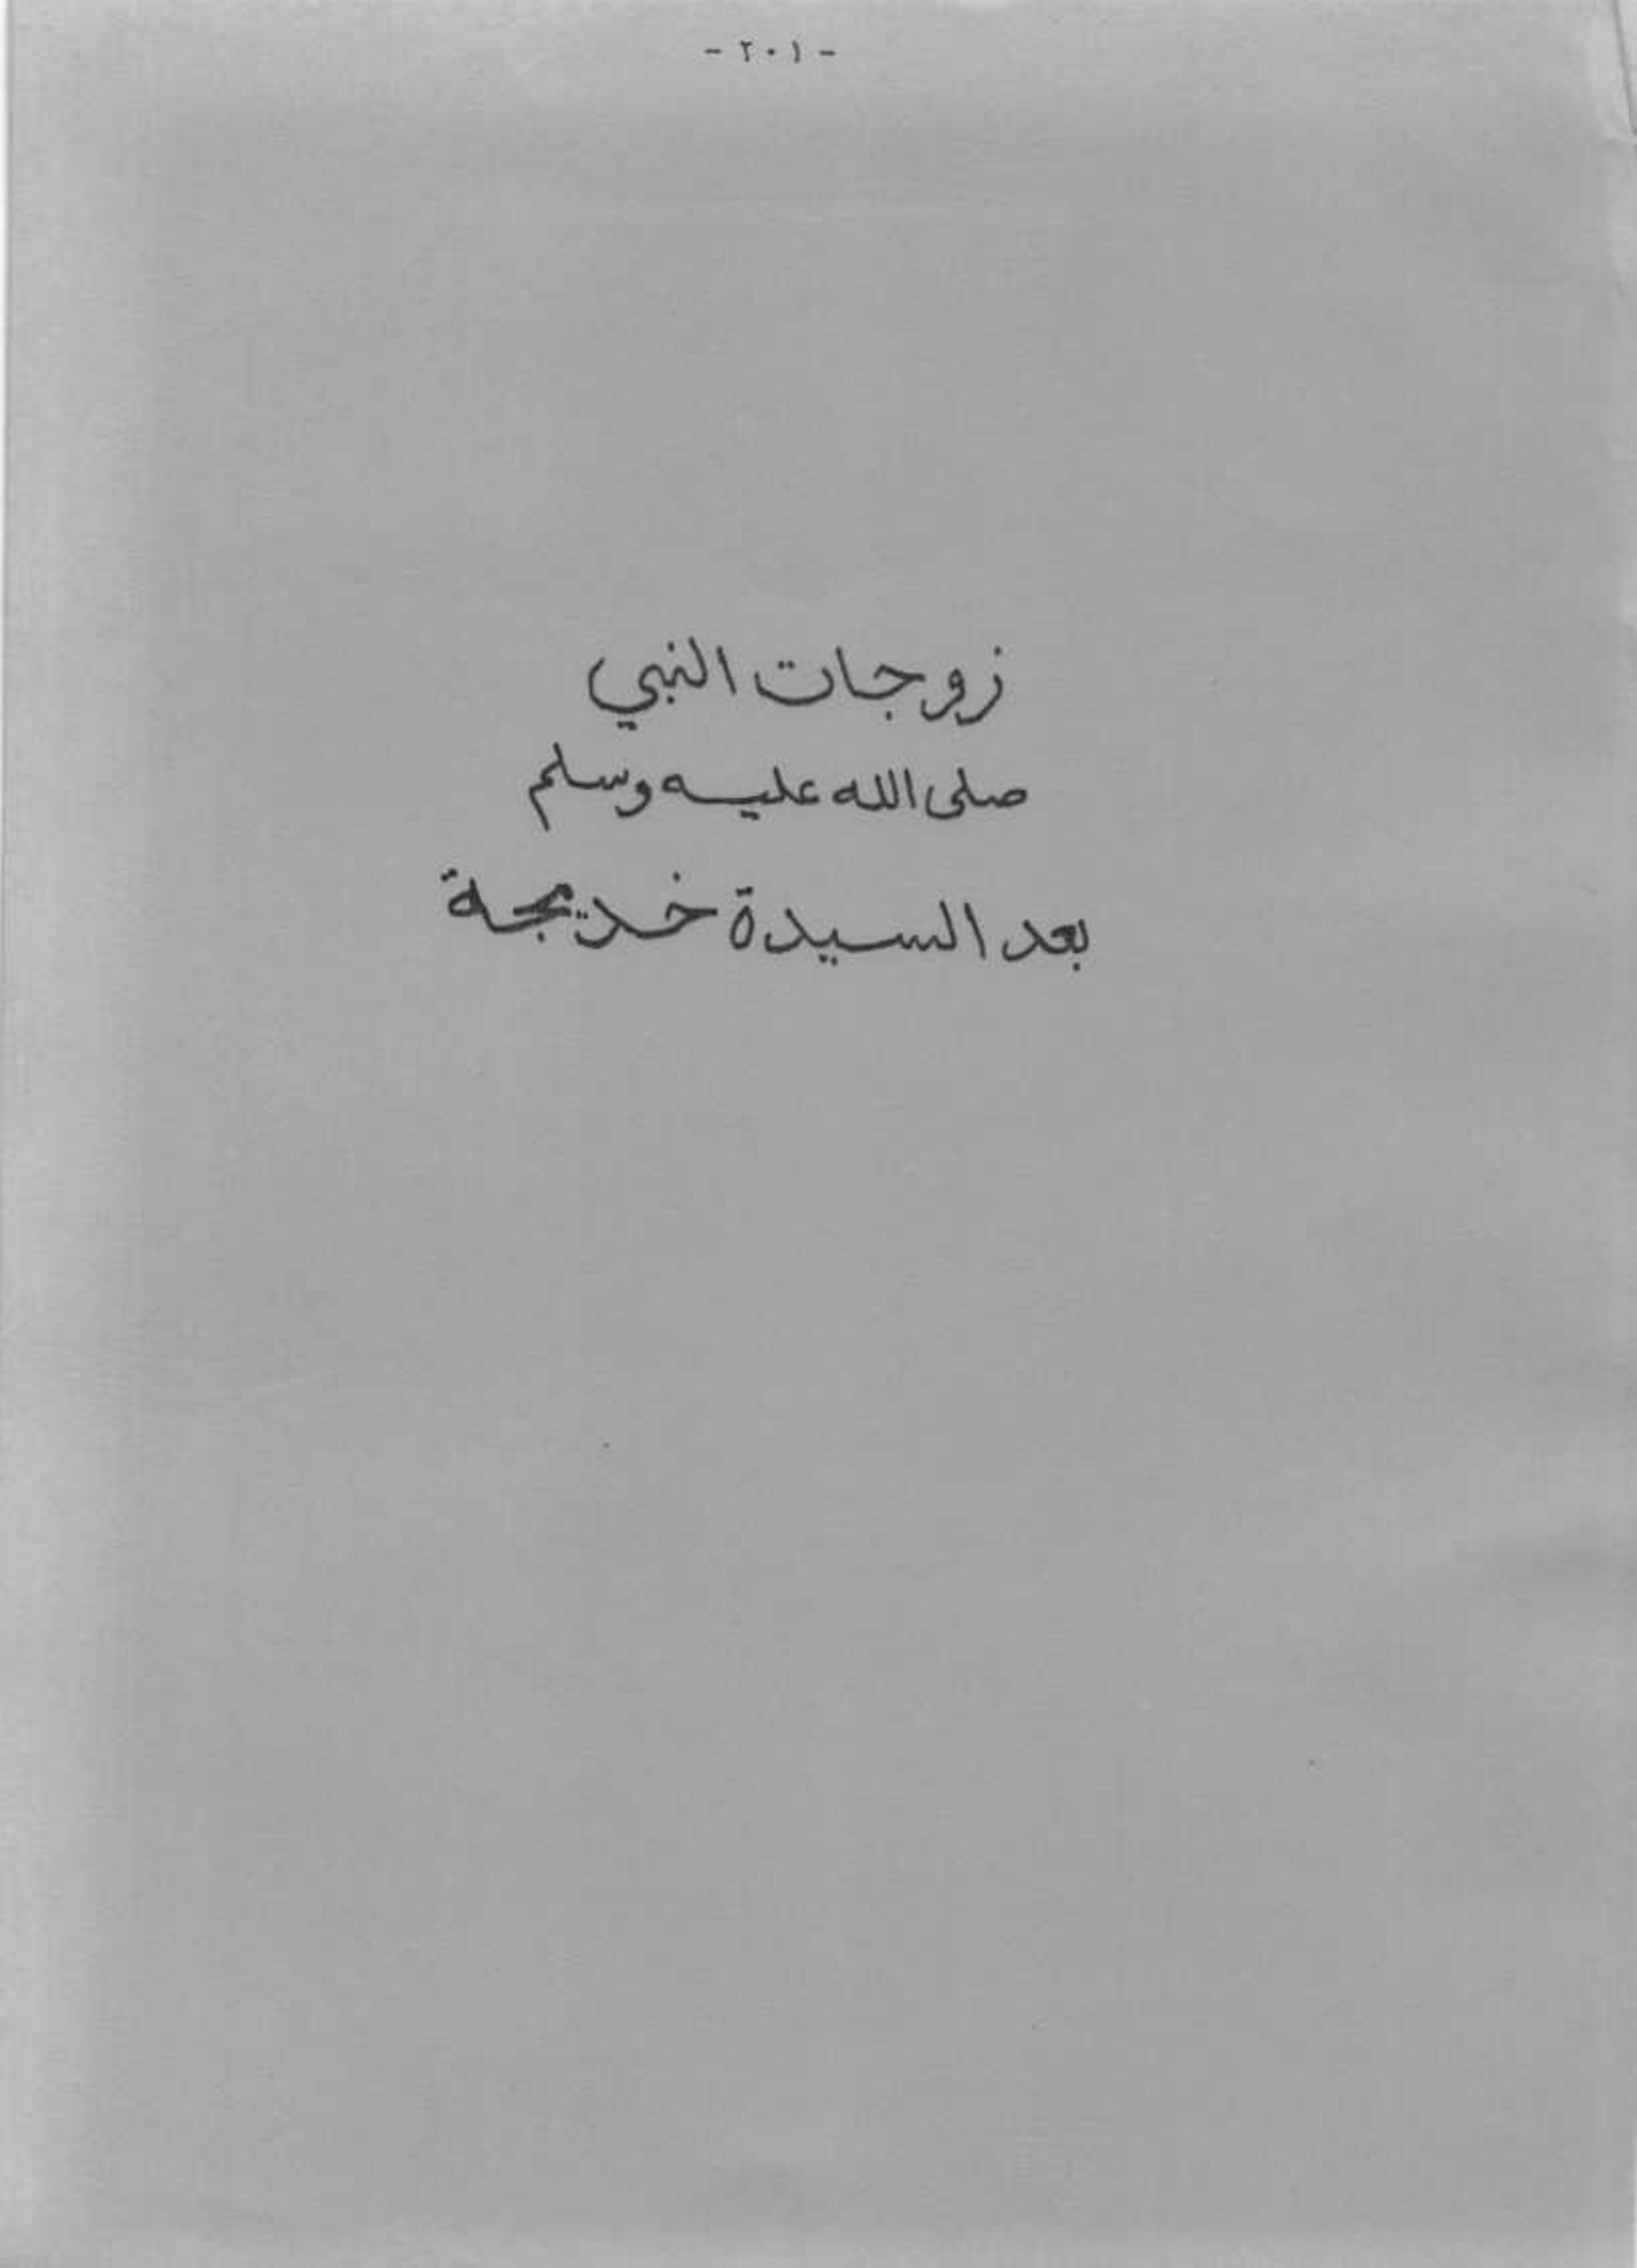 - ٢٠١ -
زوجات النبي
صلى الله عليه وسلم
بعد السيدة خديجة